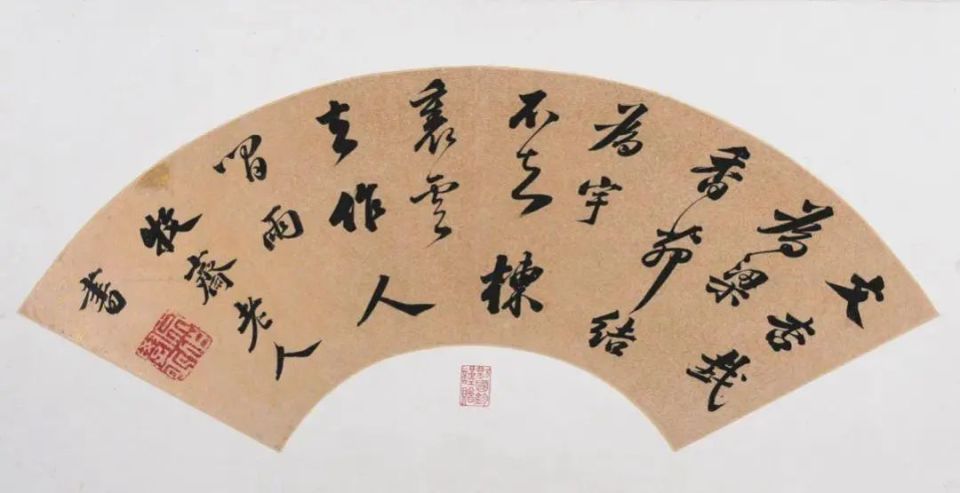 文杏裁
為梁
香茅結
為宇
不知棟
裏雲
去作人
間雨
牧齋老人
書